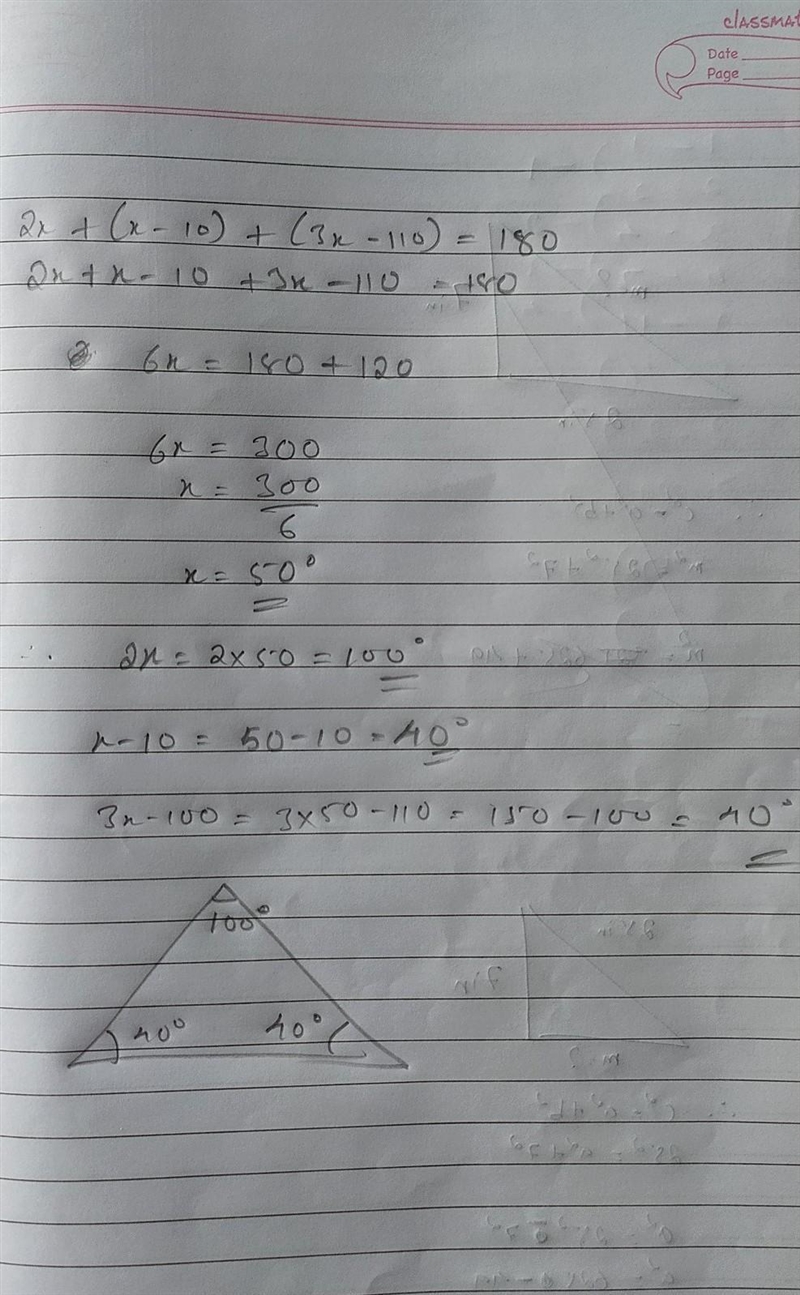 classmat
Date
Page
2x + (x - 10) + (3x - 110) = 180
2x + x - 10 + 3x - 110 = 180
6x = 180 + 120
6x = 300
x = 300
6
x = 50°
∴ 2x = 2 × 50 = 100°
x - 10 = 50 - 10 = 40°
3x - 100 = 3 × 50 - 110 = 150 - 100 = 40°
100°
40° 40°